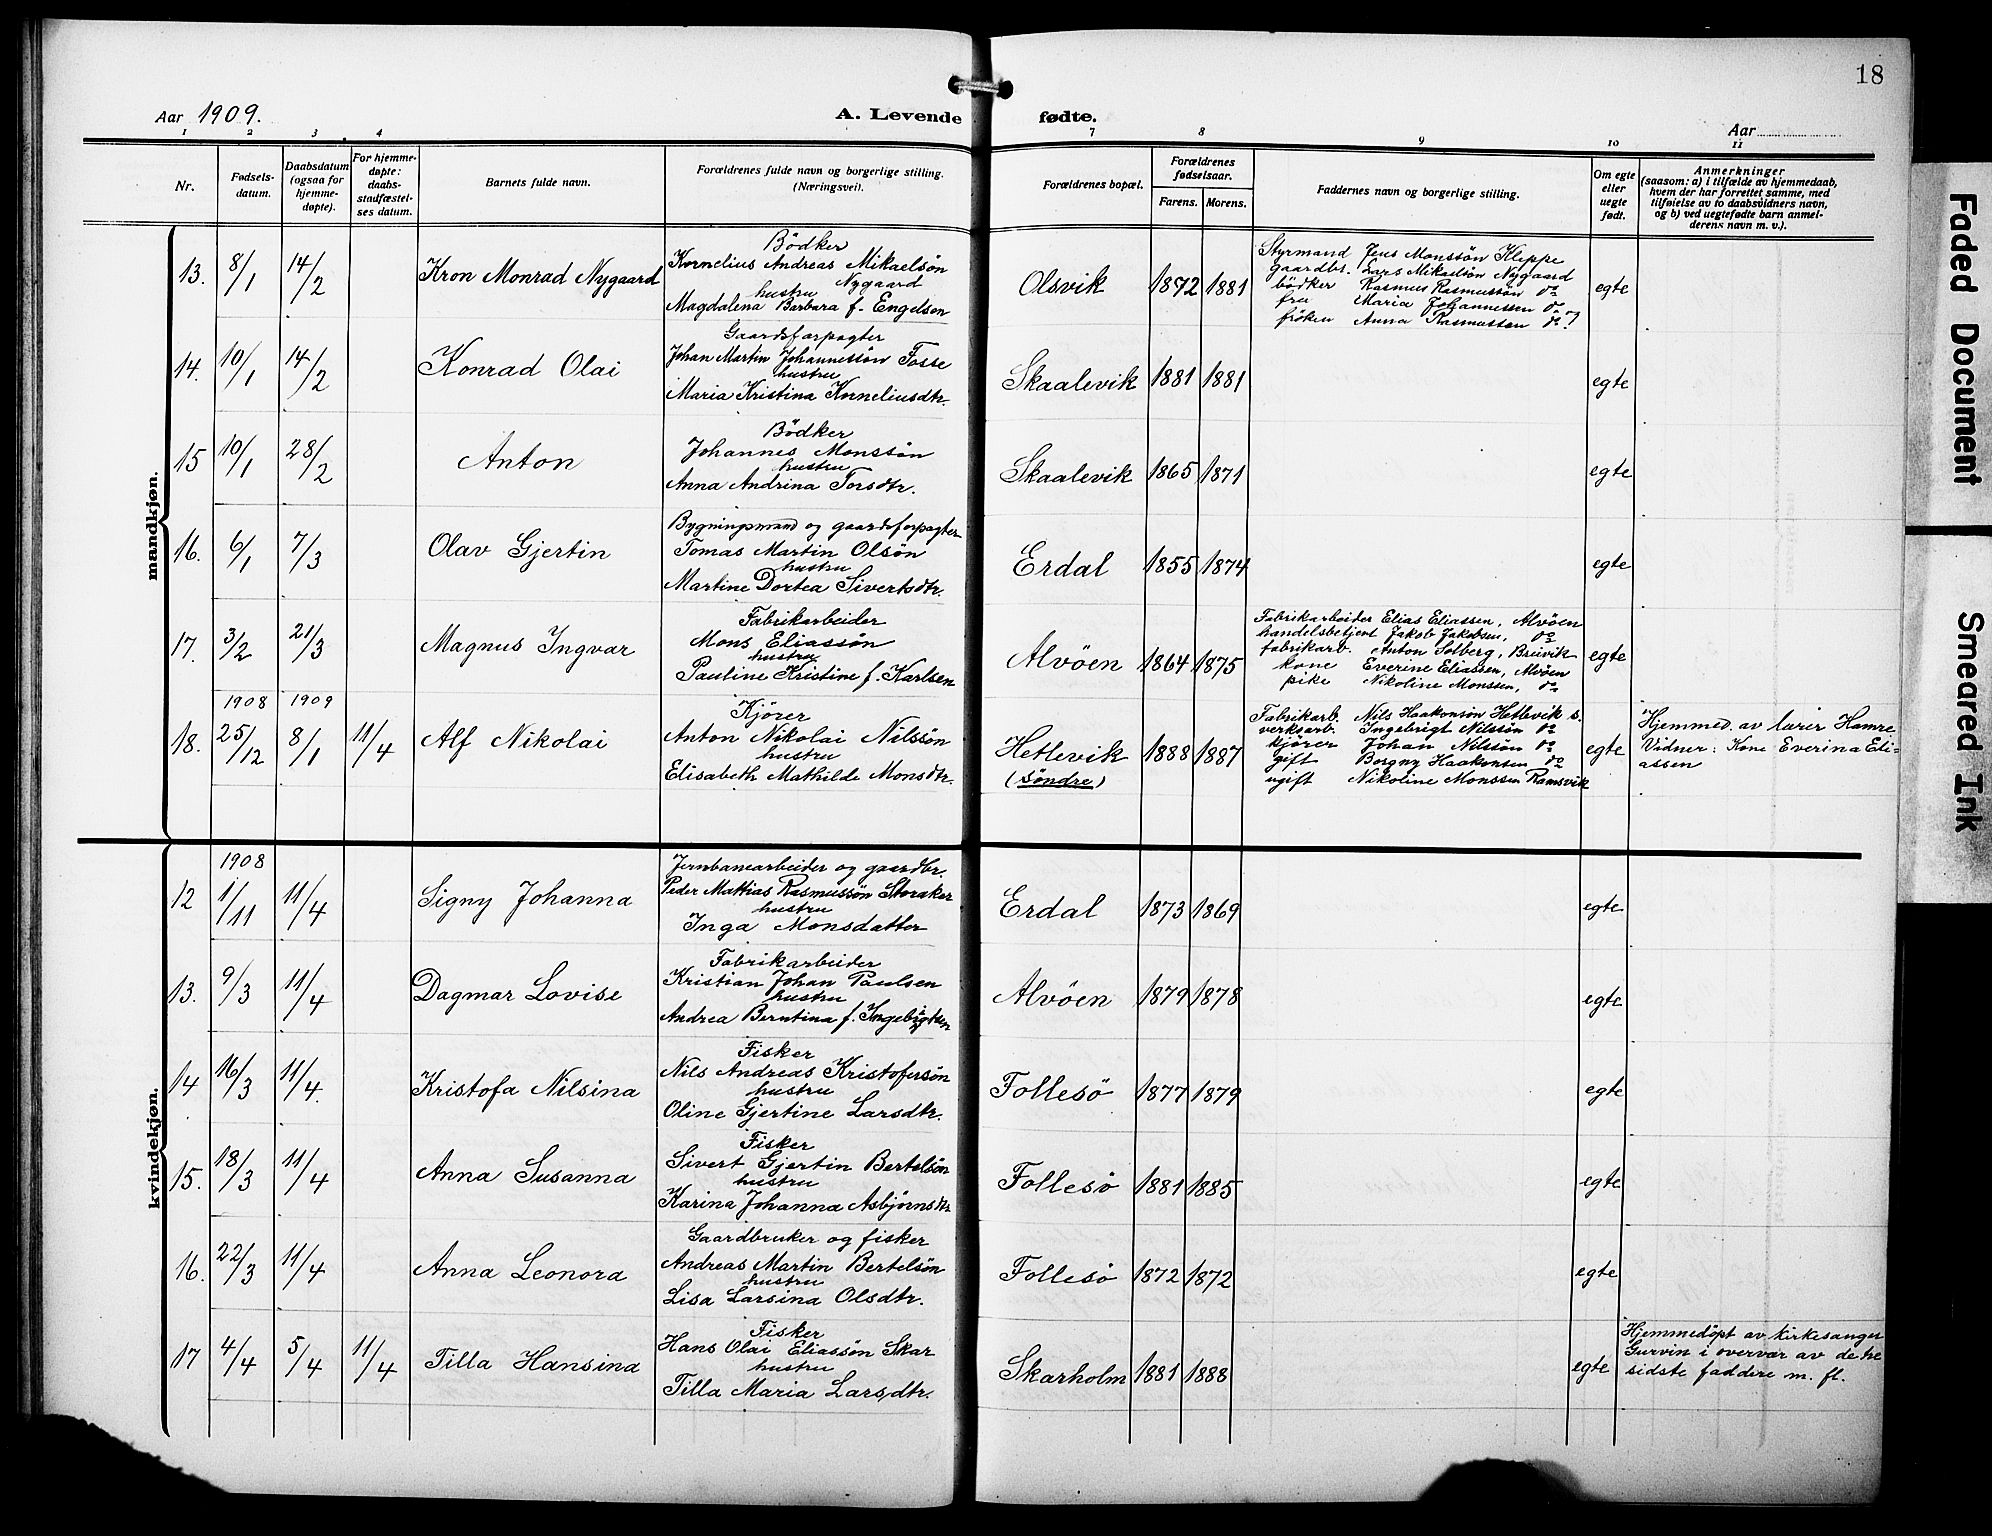 18
Aar 1909.
A. Levende fødte.
Aar
1 2 3 4 7 8 9 10 11
Nr.
Fødsels-
datum.
Daabsdatum
(ogsaa for
hjemme-
døpte).
For hjemme-
døpte:
daabs-
stadfæstel-
ses datum.
Barnets fulde navn.
Forældrenes fulde navn og borgerlige stilling.
(Næringsvei).
Forældrenes bopæl.
Forældrenes
fødselsaar.
Farens. Morens.
Faddernes navn og borgerlige stilling.
Om egte
eller
uegte
født.
Anmerkninger
(saasom: a) i tilfælde av hjemmedaab,
hvem der har forrettet samme, med
tilføielse av to daabsvidners navn,
og b) ved uegtefødte barn anmel-
derens navn m. v.).
mandkjøn.
13. 8/1 14/2 Kron Monrad Nygaard
Bödker
Kornelius Andreas Mikaelsön
Nygaard
hustru
Magdalena Barbara f. Engelsen
Olsvik 1872 1881
Styrmand Jens Monssön Kleppe
gaardbr. Lars Mikaelsön Nygaard
bödker Rasmus Rasmussön do
fru Maria Johannessen do
fröken Anna Rasmussen do?
egte
14. 10/1 14/2 Konrad Olai
Gaardsforpagter
Johan Martin Johannessön Fosse
hustru
Maria Kristina Korneliusdtr.
Skaalevik 1881 1881 egte
15 10/1 28/2 Anton
Bödker
Johannes Monssön
hustru
Anna Andrina Torsdtr.
Skaalevik 1865 1871 egte
16. 6/1 7/3 Olav Gjertin
Bygningsmand og gaardsforpagter
Tomas Martin Olsön
hustru
Martine Dortea Sivertsdtr.
Erdal 1855 1874 egte
17. 3/2 21/3 Magnus Ingvar
Fabrikarbeider
Mons Eliassön
hustru
Pauline Kristine f. Karlsen
Alvöen 1864 1875
Fabrikarbeider Elias Eliassen, Alvöen
handelsbetjent Jakob Jakobsen, do
fabrikarb. Anton Solberg, Breivik
kone Everine Eliassen, Alvöen
pike Nikoline Monssen, do
egte
1908 1909
18. 25/12 8/1 11/4 Alf Nikolai
Kjörer
Anton Nikolai Nilssön
hustru
Elisabeth Mathilde Monsdtr.
Hetlevik 1888 1887
(söndre)
Fabrikarb. Nils Haakonsön Hetlevik s.
verksarb. Ingebrigt Nilssön do
kjörer Johan Nilssön do
gift Borgny Haakonsen do
ugift Nikoline Monssen Ramsvik
egte
Hjemmed. av lærer Hamre.
Vidner: Kone Everina Eli-
assen
kvindekjøn.
1908
12 1/11 11/4 Signy Johanna
Jernbanearbeider og gaardbr.
Peder Mathias Rasmussön Storaker
hustru
Inga Monsdatter
Erdal 1873 1869 egte
13. 9/3 11/4 Dagmar Lovise
Fabrikarbeider
Kristian Johan Paulsen
hustru
Andrea Berntina f. Ingebrigtsen
Alvöen 1879 1878 egte
14 16/3 11/4. Kristofa Nilsina
Fisker
Nils Andreas Kristofersön
hustru
Oline Gjertine Larsdtr.
Follesö 1877 1879 egte
15. 18/3 11/4 Anna Susanna
Fisker
Sivert Gjertin Bertelsön
hustru
Karina Johanna Asbjörnsdtr
Follesö 1881 1885 egte
16. 22/3 11/4 Anna Leonora
Gaardbruker og fisker
Andreas Martin Bertelsön
hustru
Lisa Larsina Olsdtr.
Follesö 1872 1872 egte
17 4/4 5/4 11/4 Tilla Hansina
Fisker
Hans Olai Eliassön Skar
hustru
Tilla Maria Larsdtr.
Skarholm 1881 1888 egte
Hjemmedöpt av kirkesanger
Gurvin i overvær av de tre
sidste faddere m. fl.
Faded Document
Smeared Ink